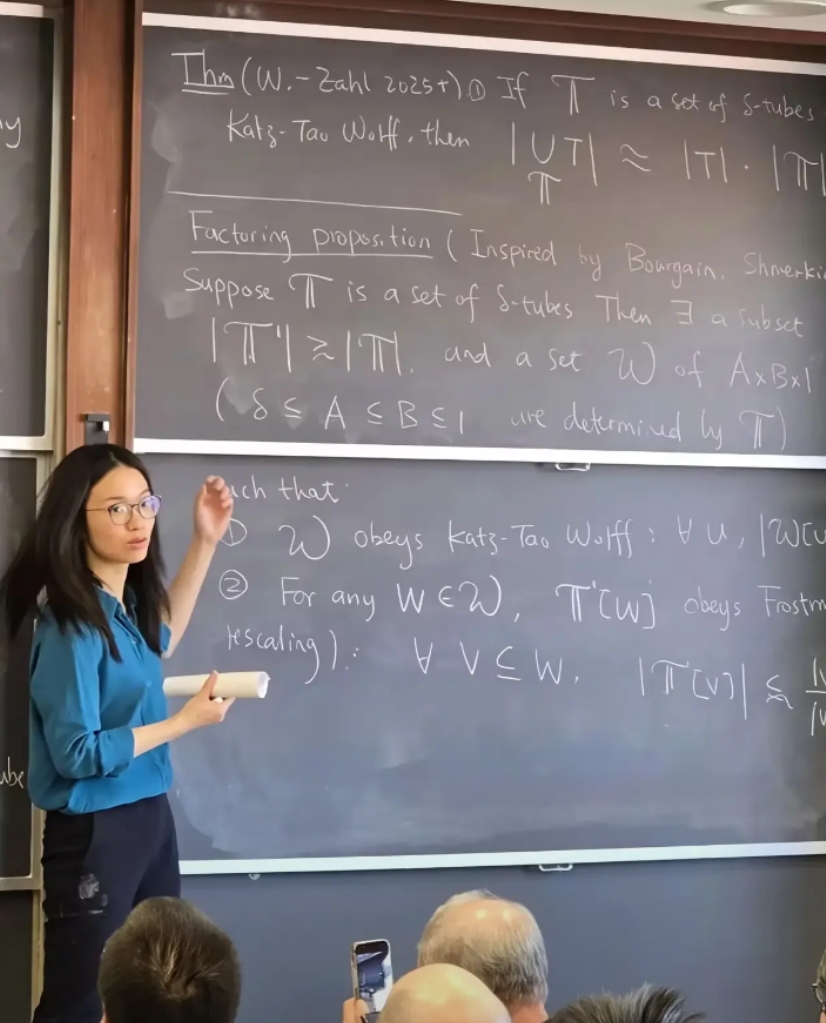 Thm (W.-Zahl 2025+) ① If 𝕋 is a set of δ-tubes
Katz-Tao Wolff, then |∪T| ≈ |T|·|𝕋|
𝕋
Factoring proposition (Inspired by Bourgain, Shmerki
Suppose 𝕋 is a set of δ-tubes Then ∃ a subset
|𝕋'| ⪆ |𝕋|, and a set 𝒲 of A×B×1
(δ ≤ A ≤ B ≤ 1 are determined by 𝕋)
uch that:
① 𝒲 obeys Katz-Tao Wolff: ∀ U, |𝒲[U
② For any W ∈ 𝒲, 𝕋'[W] obeys Frostm
rescaling): ∀ V ⊆ W, |𝕋'[V]| ⪅
ube